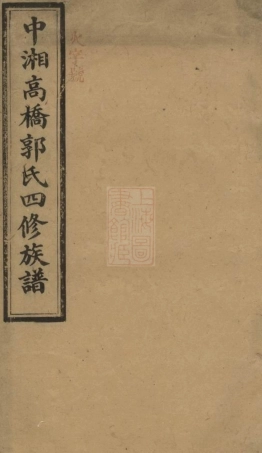 中湘高橋郭氏四修族譜
火字號
上海圖書館藏